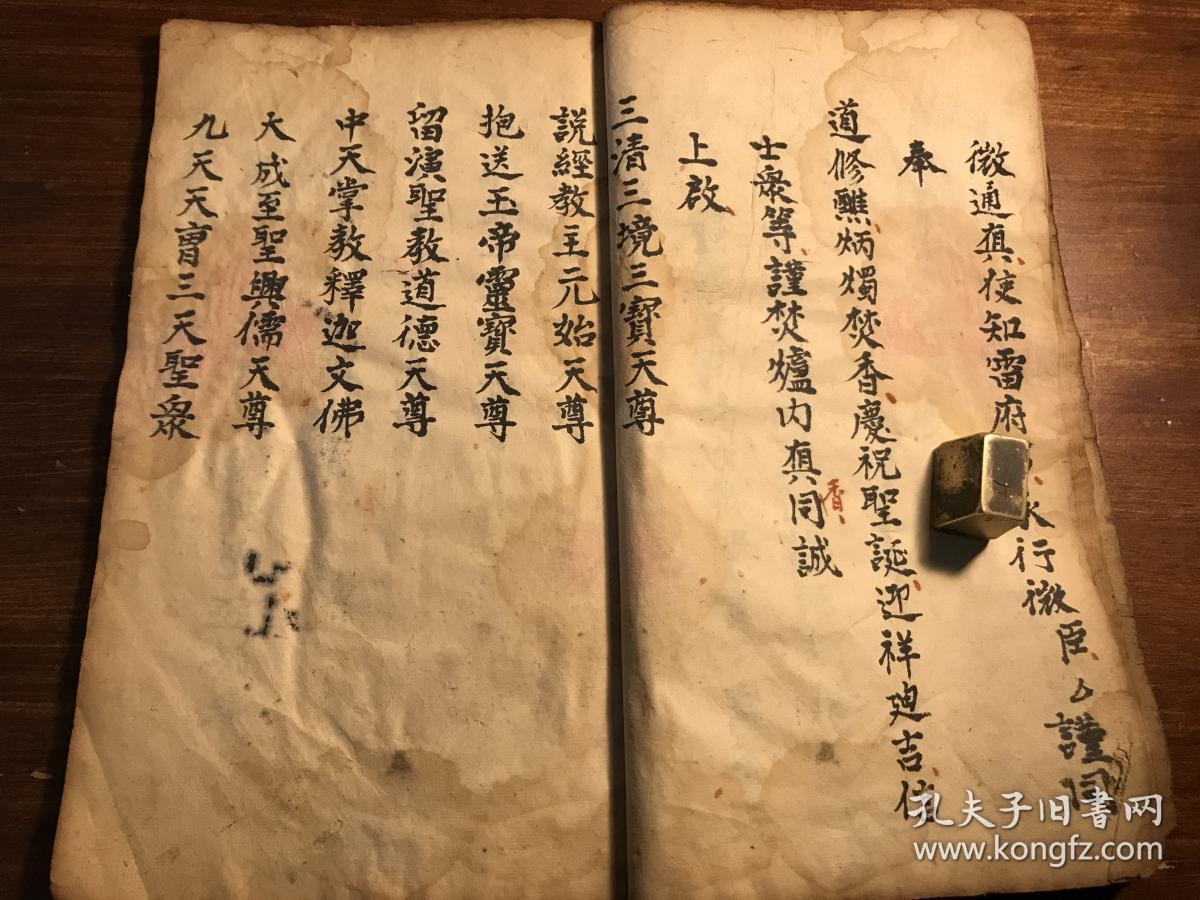 徵通真使知雷府行徵臣厶謹同
奉
道修醮炳燭焚香慶祝聖誕迎祥迪吉信
士衆等謹焚爐內真同誠
香
上啟
三清三境三寶天尊
說經教主元始天尊
抱送玉帝靈寶天尊
留演聖教道德天尊
中天掌教釋迦文佛
大成至聖興儒天尊
九天天曹三天聖衆
孔夫子旧书网
www.kongfz.com